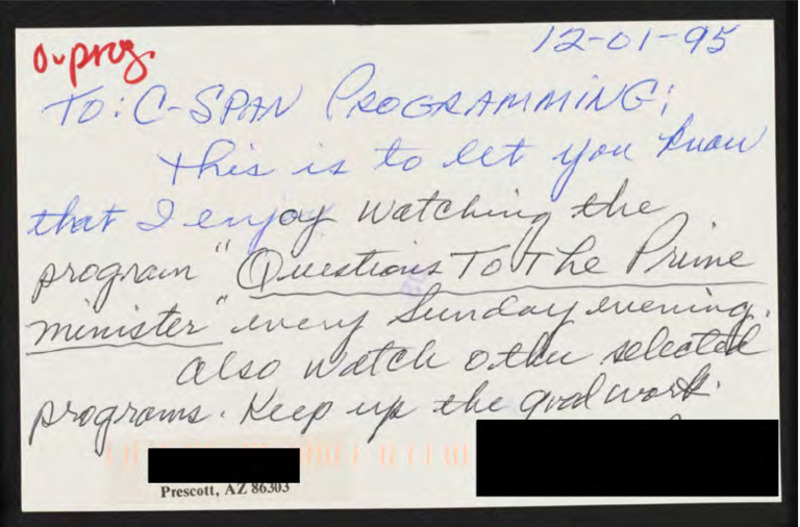 o-prog.
12-01-95
TO: C-SPAN PROGRAMMING;
This is to let you know
that I enjoy watching the
program "Questions To The Prime
minister" every Sunday evening.
Also watch other selected
programs. Keep up the good work.
Prescott, AZ 86303